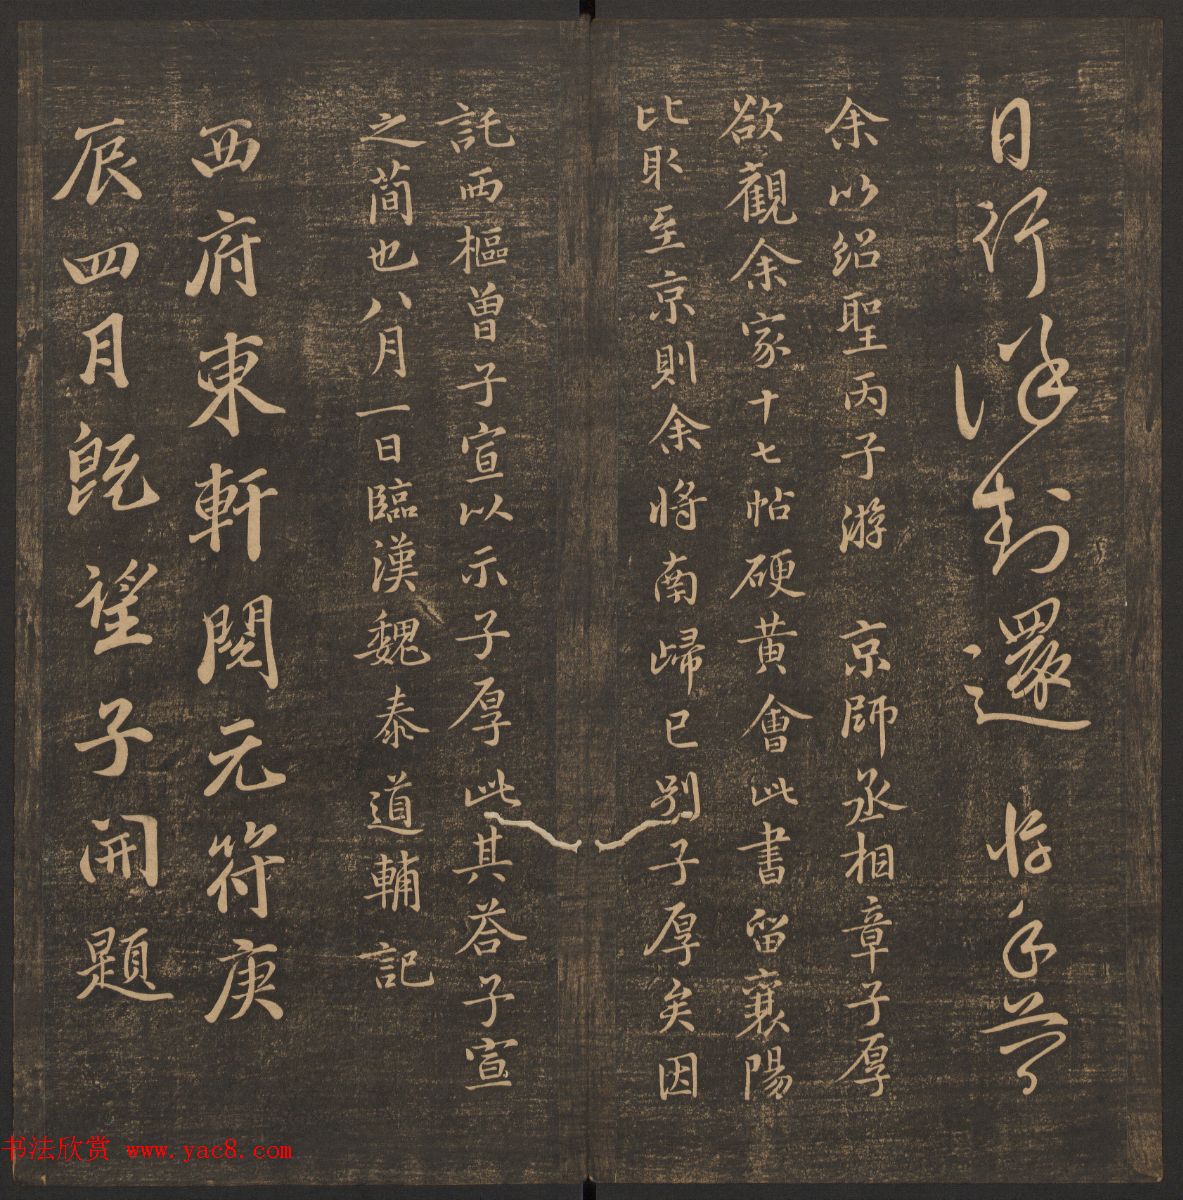 日行深封還 惇手簡
余以紹聖丙子游 京師丞相章子厚
欲觀余家十七帖硬黃會此書留襄陽
比取至京則余將南歸已別子厚矣因
託西樞曾子宣以示子厚此其荅子宣
之簡也八月一日臨漢魏泰道輔記
西府東軒閱元符庚
辰四月既望子開題
书法欣赏 www.yac8.com